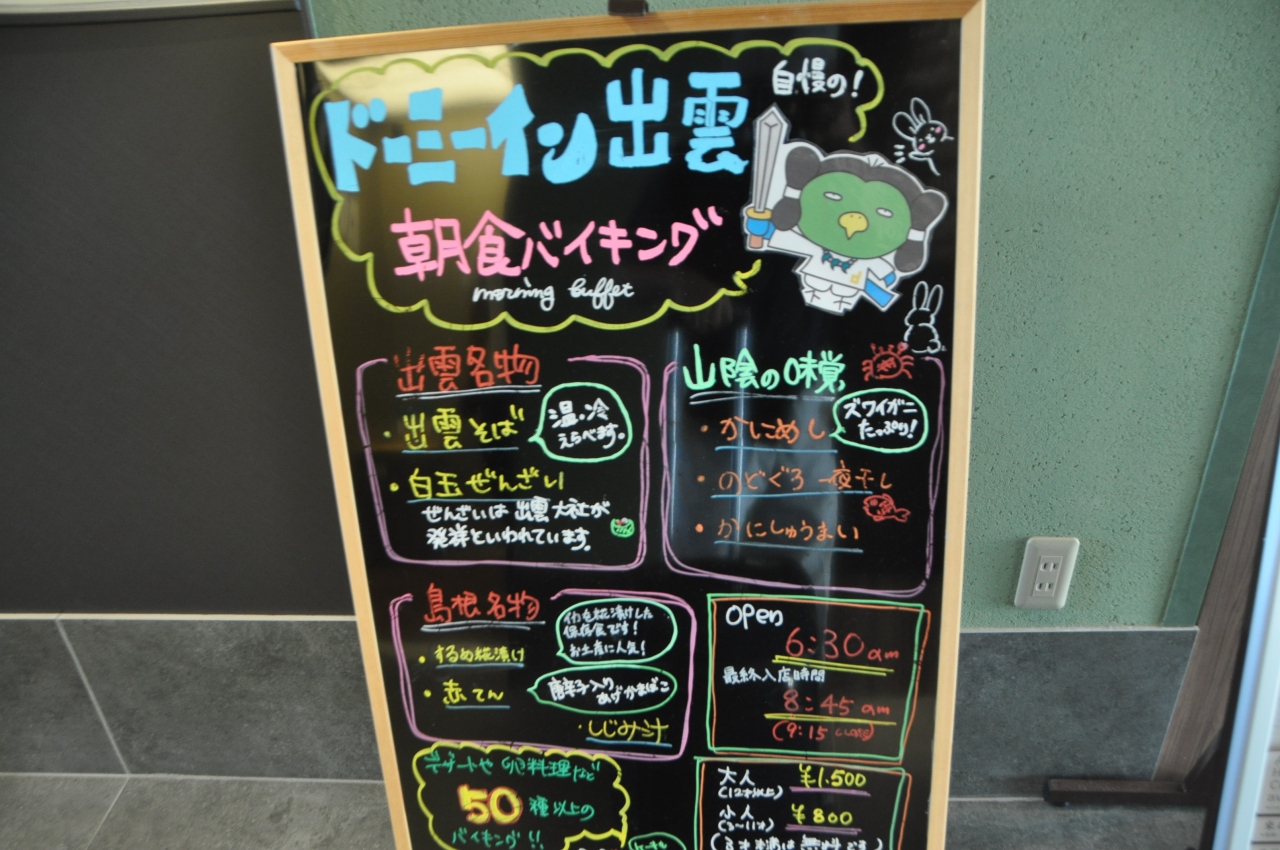 自慢の!
ドーミーイン出雲
朝食バイキング
morning buffet
出雲名物
・出雲そば
温・冷
えらべます。
・白玉ぜんざい
ぜんざいは出雲大社が
発祥といわれています。
山陰の味覚
・かにめし
ズワイガニ
たっぷり!
・のどぐろ一夜干し
・かにしゅうまい
島根名物
・するめ糀漬け
イカを糀漬けした
保存食です!
お土産に人気!
・赤てん
唐辛子入り
あげかまぼこ
・しじみ汁
open
6:30am
最終入店時間
8:45am
(9:15 CLOSE)
デザートや卵料理など
50種以上の
バイキング!!
大人
(12才以上)
¥1,500
小人
(3~11才)
¥800
(3才未満は無料です)